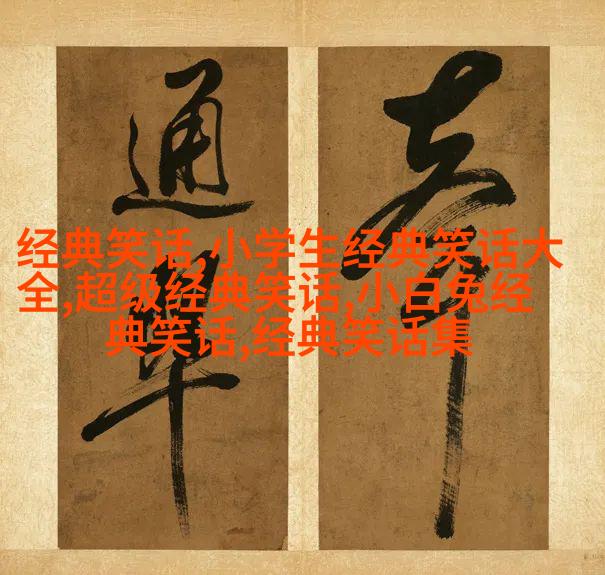 经典笑话,小学生经典笑话大
全,超级经典笑话,小白兔经
典笑话,经典笑话集
通